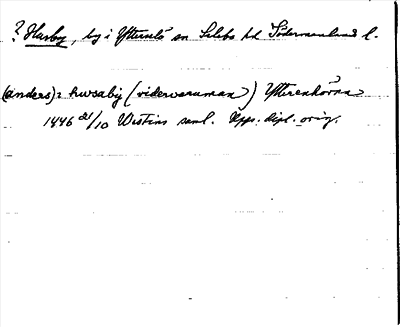 ? Husby, by i Ytterselö sn Selebo hd Södermanland l.
(anders) i hwsaby (widervaruman) Ytterenhörna
1446 21/10 Westins saml. Upps. dipl. orig.